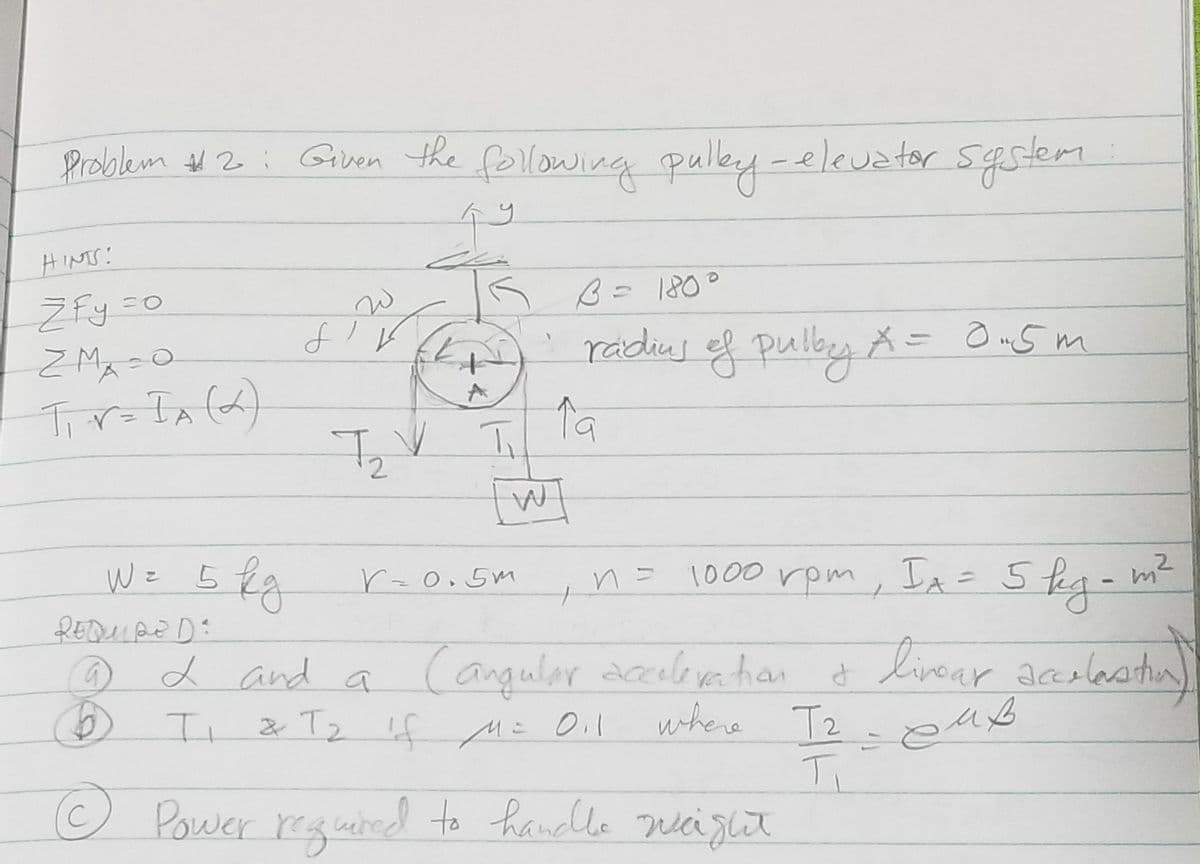 Problem # 2 : Given the following pulley - elevator system :
y
HINTS:
ΣFy = 0
β = 180°
ΣM_A = 0
radius of pulley A = 0.5 m
A
T₁ r = I_A (α)
↑a
T₂
T₁
W
W = 5 kg r = 0.5m , n = 1000 rpm, I_A = 5 kg - m²
REQUIRED:
ⓐ α and a (angular acceleration & linear acceleration)
ⓑ T₁ & T₂ if μ = 0.1 where T₂/T₁ = e^μβ
ⓒ Power required to handle weight